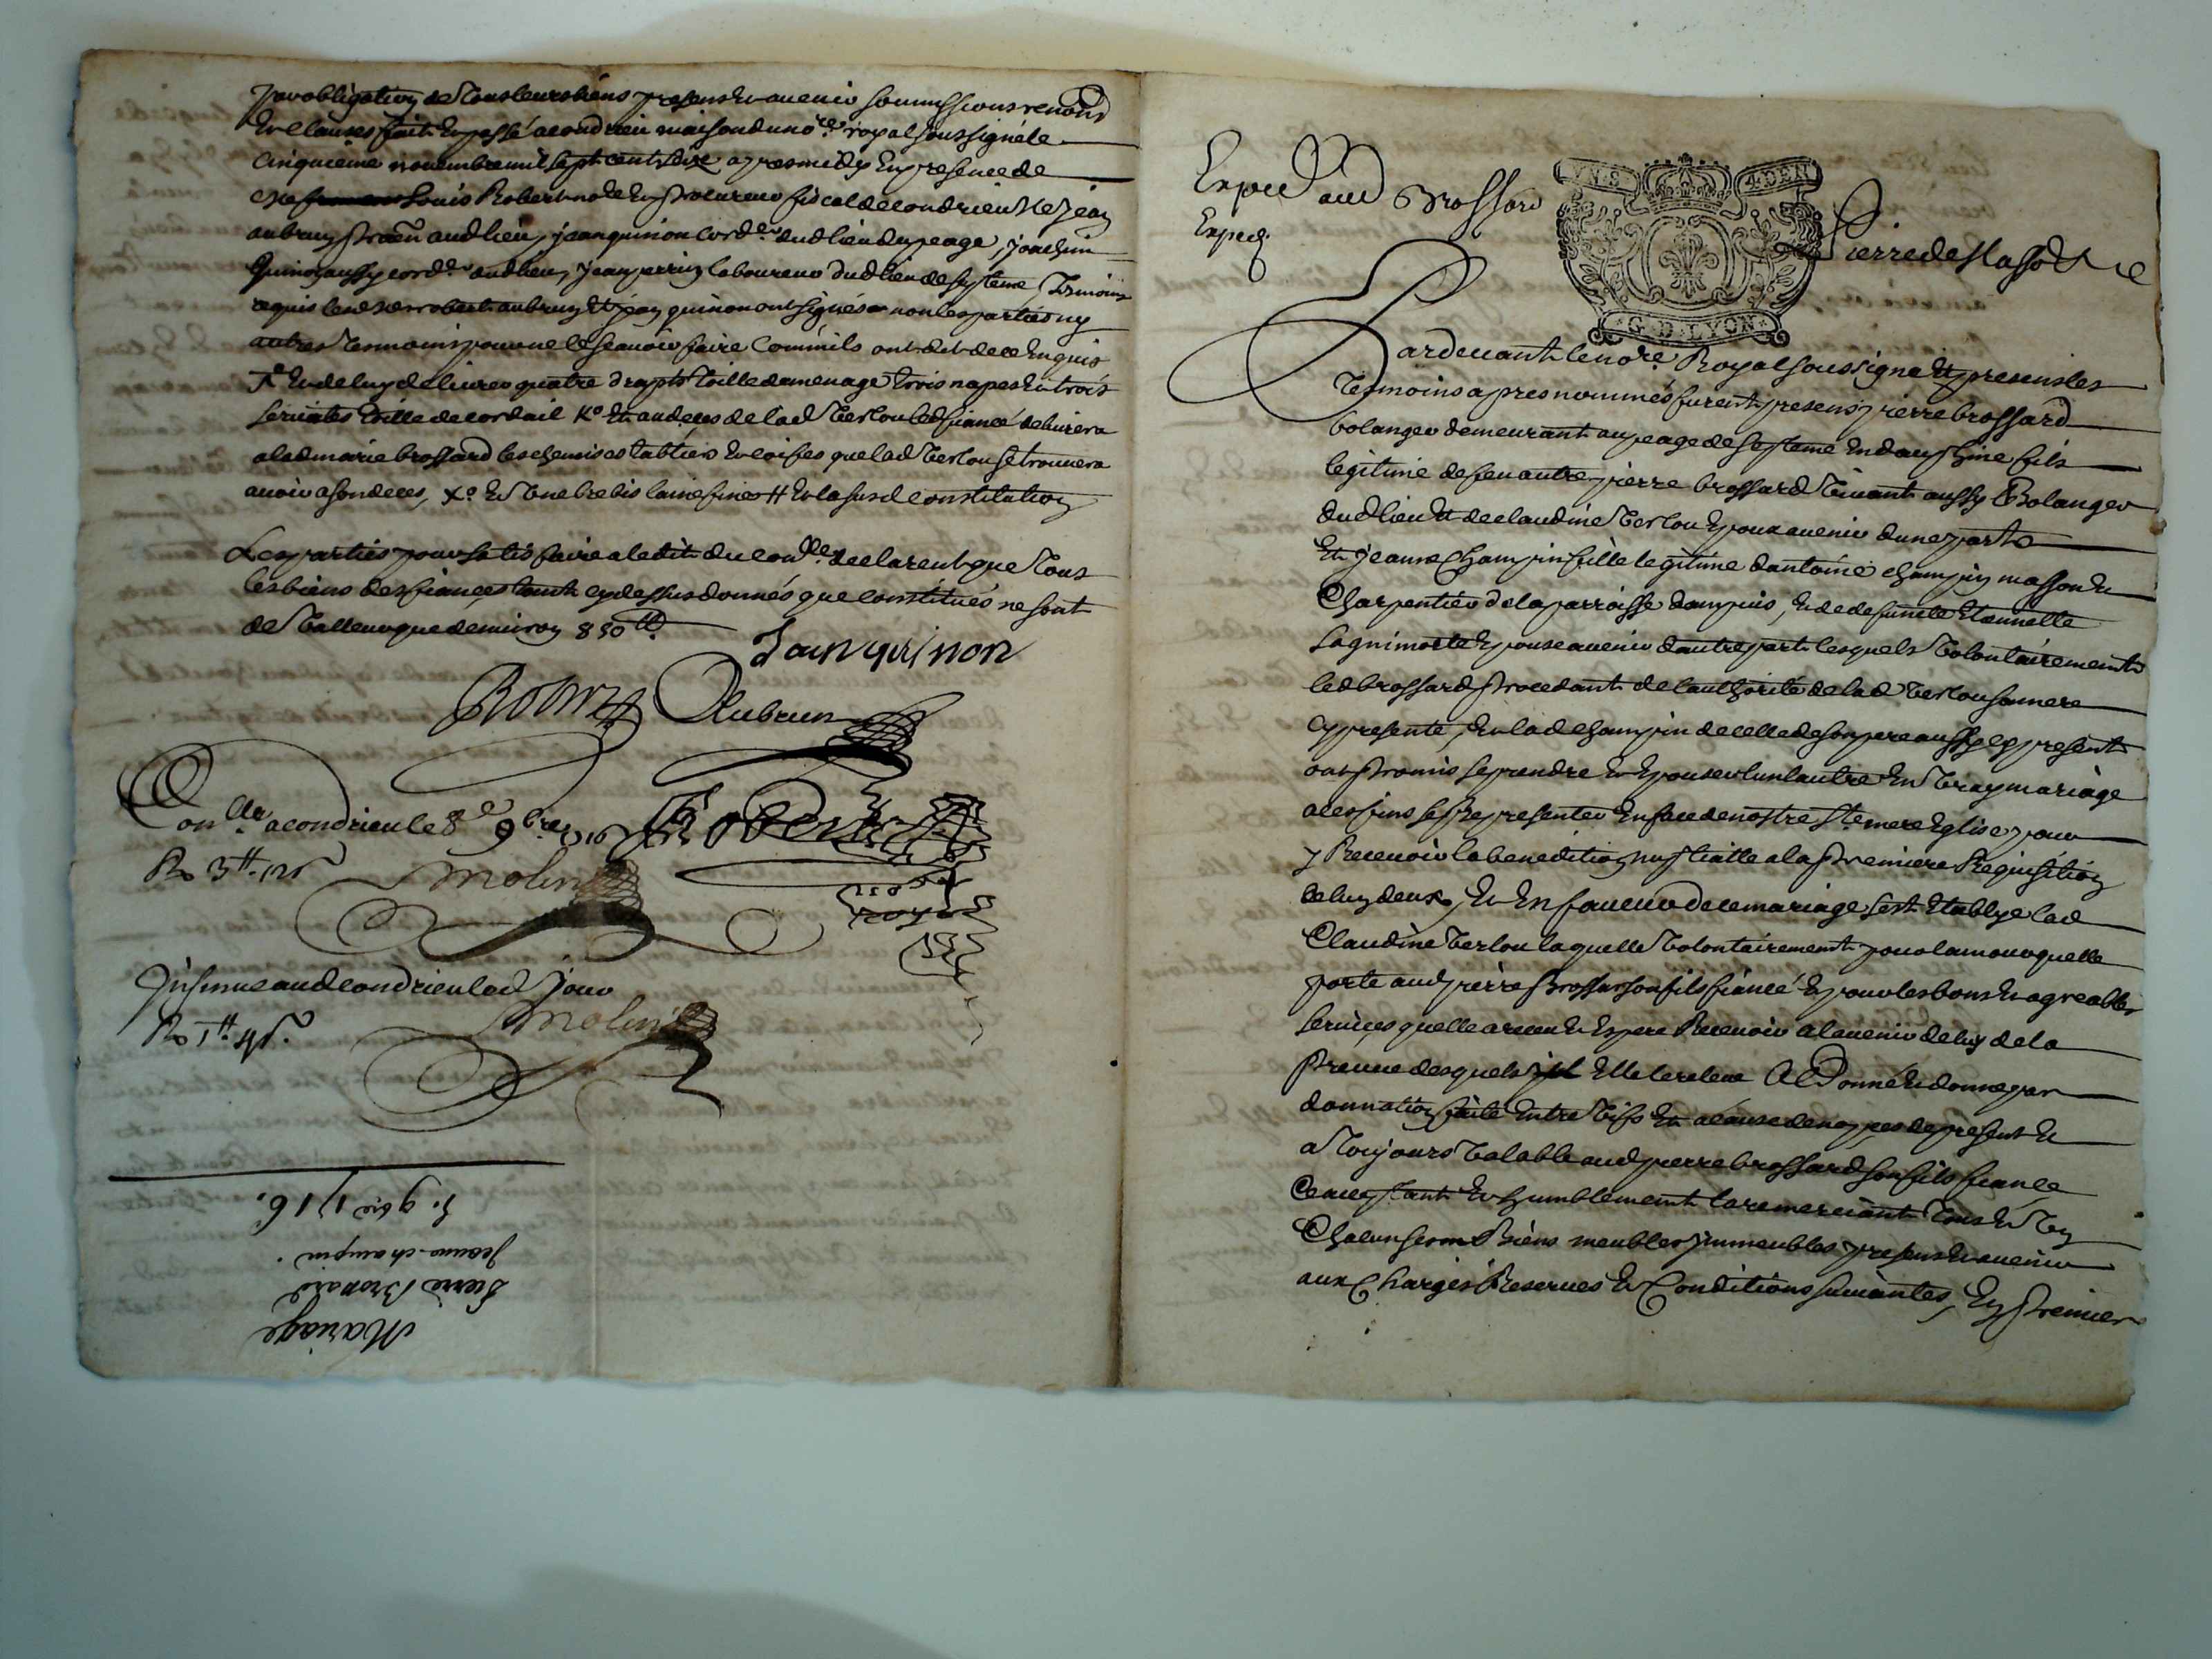 par obligation de tous leurs biens presens et avenir soumissions renonc
et clauses fait et passé a condrieu maison du no.re royal soussigné le
cinquieme novembre mil sept cent seize apres midy en presence de
Louis Robert no.re et procureur fiscal de condrieu Me Jean
aubrun procu aud lieu, jean quinon cord.er dud lieu du peage, joachim
quinon aussy cord.er aud lieu, jean perrin laboureur dud lieu de septeme, temoins
requis led Srs robert aubrun et jean quinon ont signés non les parties ny
autres tesmoins pour ne le scavoir faire comm'ils ont dit de ce enquis
et de luy delivrer quatre draps toille de menage trois napes et trois
serviates toille de cordail Ro et au deces de lad Verlou led fiancé delivrera
a lad marie brossard les chemises tabliers et coifes que lad Verlou se trouvera
avoir a son deces, xo et une brebis laine fine # et la susd constitution
Les parties pour satisfaire a ledit du con.lle declarent que tous
les biens des fiancés tant cy dessus donnés que constitués ne sont
de valleur que d'environ 850 tt
Jan quinon
Robert Aubrun
Con.lle a condrieu le 8e 9bre 1716 Robert
R 3tt 12s Molin
no.re
royal
Insinué aud condrieu led jour
R 1tt 4s. Molin
5. 9bre 1716.
Jeanne champin.
Pierre Brossard
Mariage
Exped aud Brossard
Exped.
UNS 4.DEN
G.D.LYON
Pierre de
Pardevant le no.re Royal soussigné et presens les
tesmoins apres nommés furent presens pierre brossard
bolanger demeurant au peage de septeme en dauphine fils
legitime de feu autre pierre brossard vivant aussy Bolanger
dud lieu et de claudine Verlou epoux avenir d'une part
Et jeanne Champin fille legitime d'antoine champin masson et
Charpentier de la parroisse d'ampuis, et de defuncte
epouse avenir d'autre part lesquels volontairement
led brossard procedant de l'authorité de lad Verlou sa mere
cy presente, et lad champin de celle de son pere aussy cy present
ont promis se prendre et epouser l'un l'autre en vray mariage
a ces fins se presenter en face de nostre Ste mere Eglise pour
y Recevoir la benediction nuptialle a la premiere Requisition
de l'un d'eux, Et en faveur de ce mariage s'est etablye lad
Claudine Verlou laquelle volontairement pour l'amour quelle
porte aud pierre Brossar son fils fiancé et pour les bons et agreables
services quelle a receu et Espere Recevoir a l'avenir de luy de la
Preuve desquels Elle le releve A Donné et donne par
donnation faite entre vifs et a cause de nopces de present et
a toujours valable aud pierre brossard son fils fiancé
Ce acceptant et humblement la remerciant tous et un
Chacun ses Biens meubles immeubles presens et avenir
aux Charges Reserves et Conditions suivantes, En Premier